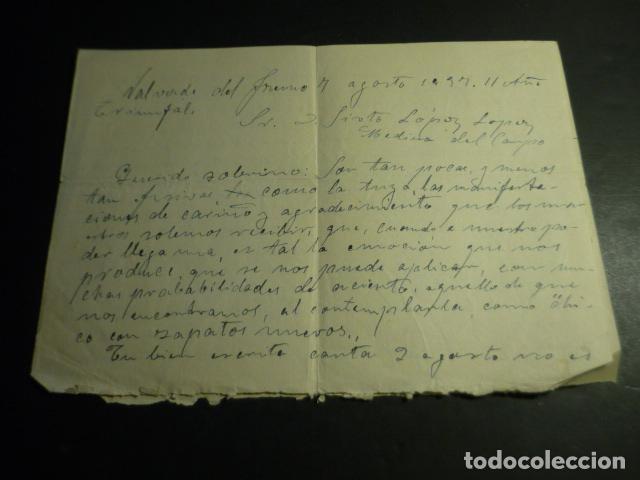 Valverde del fresno 7 agosto 1937. II Año
Triunfal.
Sr. D. Sixto López Lopez
Medina del Campo
Querido sobrino: Son tan pocas, y menos
tan como la tuya, las manifesta-
ciones de cariño y agradecimiento que los
solemos recibir, que, cuando a nuestro po-
der llega una, es tal la emoción que nos
produce, que se nos puede aplicar, con mu-
chas probabilidades de acierto, aquello de que
nos encontramos, al contemplarla, como "chi-
co con zapatos nuevos",
Tu bien escrita carta 2 agosto no es
todocoleccion